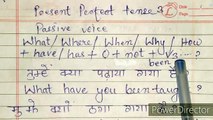 Present Perfect tense
Passive voice
What/Where/When/Why/How
+ have/has + O + not + V3 ?
been
तुम्हें क्या पढ़ाया गया है
What have you been taug
मुझे क्यों ठगा गया
PowerDirector